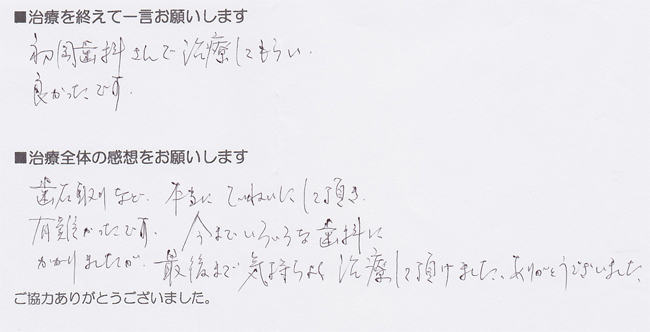 ■治療を終えて一言お願いします
初岡歯科さんで治療してもらい、
良かったです。
■治療全体の感想をお願いします
歯石取りなど、本当にていねいにして頂き
有難かったです。今までいろいろな歯科に
かかりましたが、最後まで気持ちよく治療して頂けました。ありがとうございました。
ご協力ありがとうございました。